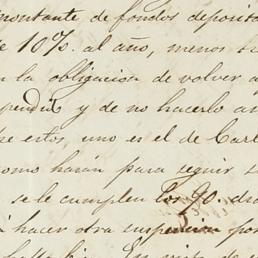 montante de fondos deposita
de 10%. al año, menos su
n la obligacion de volver a
pendió y de no hacerlo an
estos, uno es el de Carl
como harán para seguir s
se le cumplen los 90. dias
á hacer otra suspencion por
En vista de